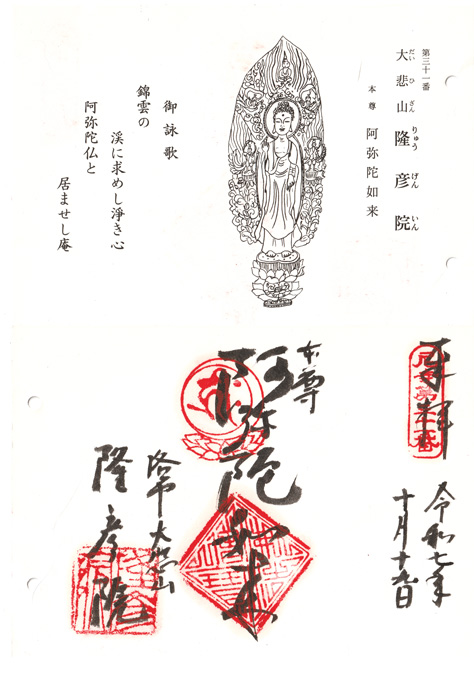 第三十一番
大悲山 隆彦院
だいひざん りゅうげんいん
本尊 阿弥陀如来
御詠歌
錦雲の
渓に求めし浄き心
阿弥陀仏と
居ませし庵
奉拝
令和七年
十月十九日
本尊
阿弥陀如来
洛中 大悲山
隆彦院